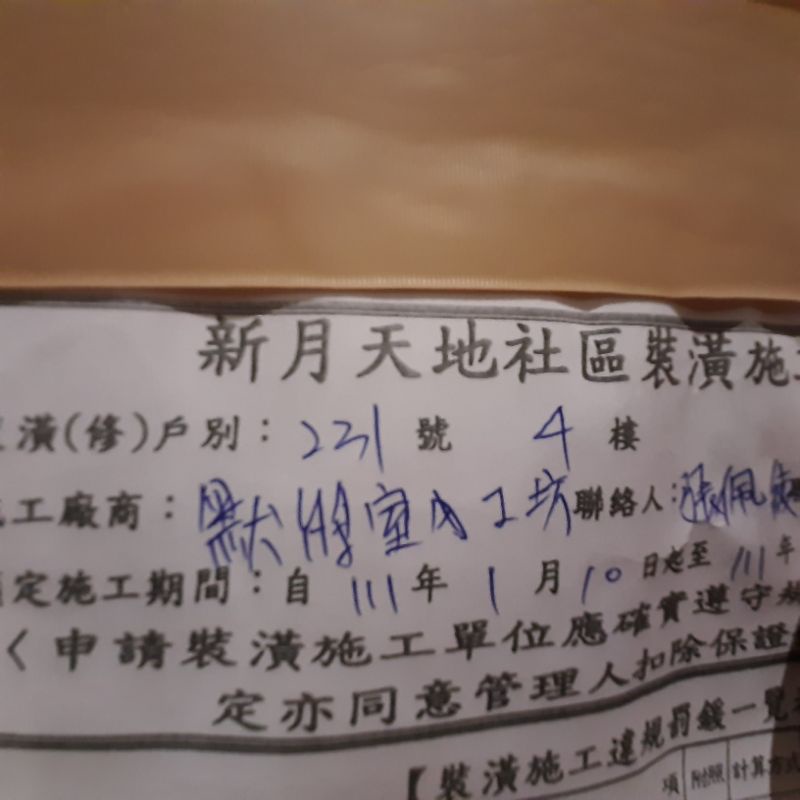 新月天地社區裝潢施
潢(修)戶別：231號 4樓
工廠商：默 室內工坊聯絡人：張佩
定施工期間：自111年1月10日起至111年
〈申請裝潢施工單位應確實遵守
定亦同意管理人扣除保證
【裝潢施工違規罰鍰一覽
項 附照 計算方式